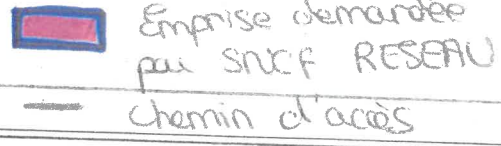 Emprise demandée
par SNCF RESEAU
chemin d'accès